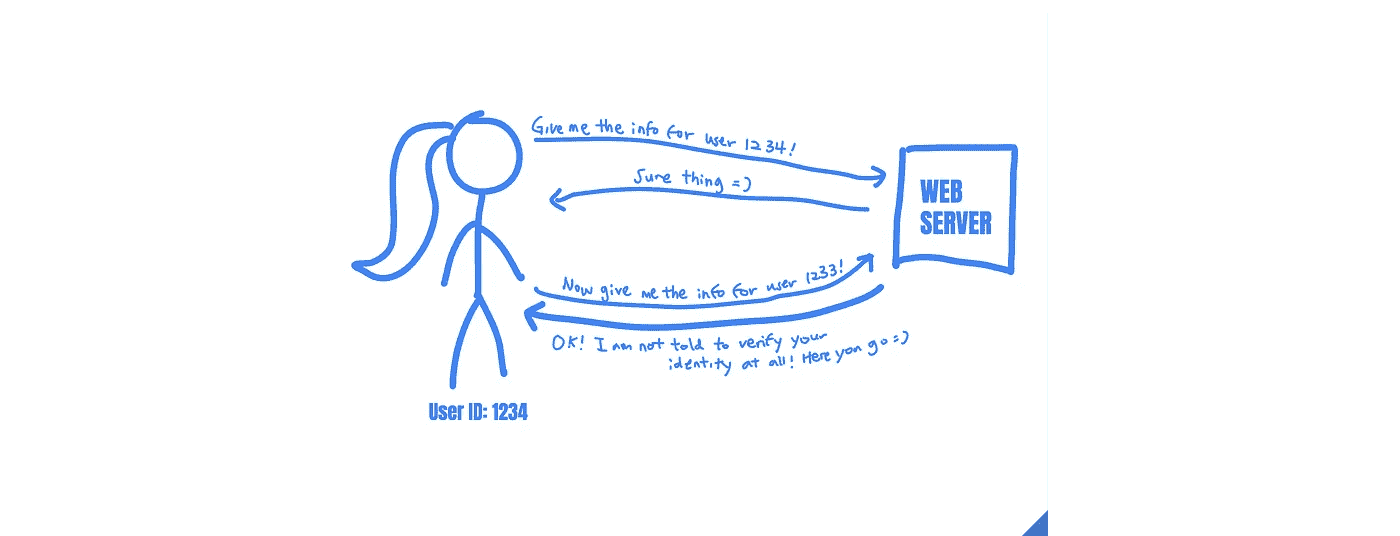 Give me the info for user 1234!
Sure thing =)
WEB
SERVER
Now give me the info for user 1233!
OK! I am not told to verify your
identity at all! Here you go =)
User ID: 1234